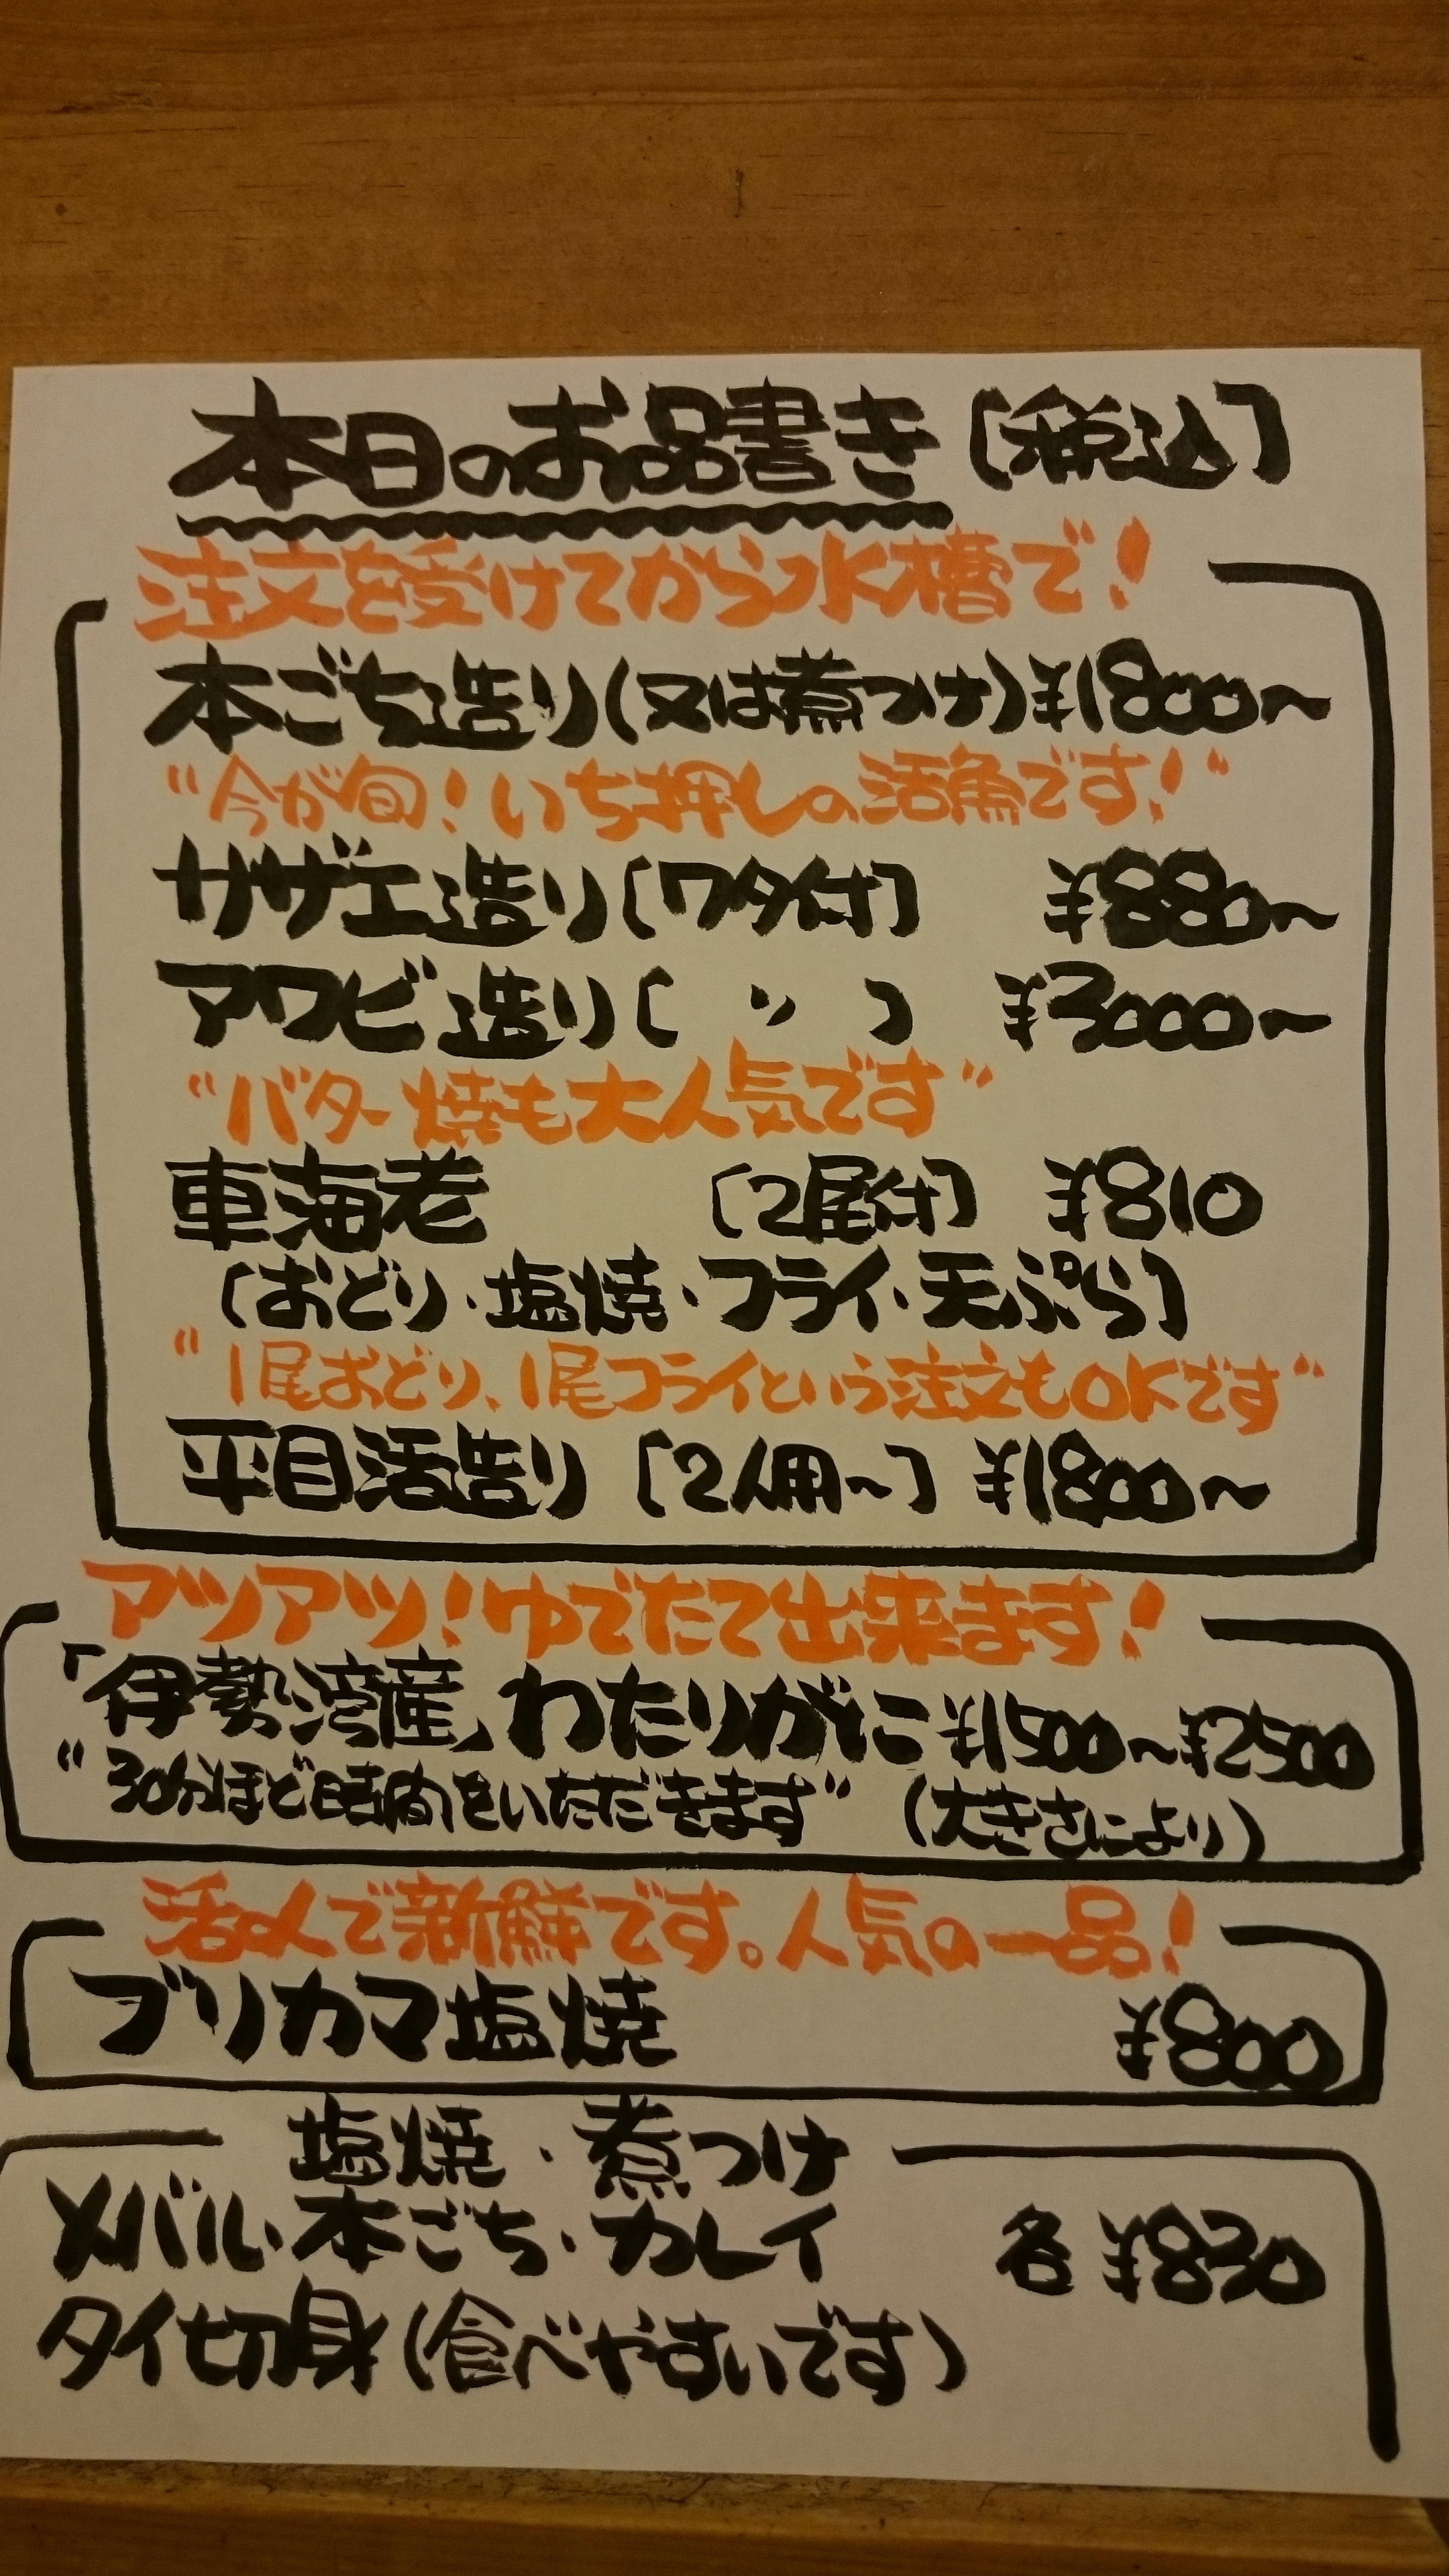 本日のお品書き〔税込〕
注文を受けてから水槽で!
本ごち造り(又は煮つけ)¥1800〜
"今が旬!いち押しの活魚です!"
サザエ造り〔ワタ付〕 ¥880〜
アワビ造り〔 〃 〕 ¥3000〜
"バター焼も大人気です"
車海老 〔2尾付〕 ¥810
〔おどり・塩焼・フライ・天ぷら〕
"1尾おどり、1尾フライという注文もOKです"
平目活造り〔2人用〜〕¥1800〜
アツアツ!ゆでたて出来ます!
「伊勢湾産」わたりがに¥1500〜¥2500
"30分ほど時間をいただきます"(大きさにより)
活〆で新鮮です。人気の一品!
ブリカマ塩焼 ¥800
塩焼・煮つけ
メバル・本ごち・カレイ 各¥830
タイ切身(食べやすいです)